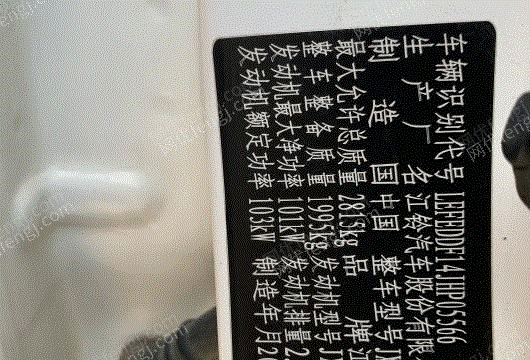 车辆识别代号 LEFEDDF14JHP05566
生产厂名 江铃汽车股份有限
制造国 中国 整车型号 J
最大允许总质量 2815kg 品牌 江
整车整备质量 1995kg 发动机型号 J
发动机最大净功率 101kW 发动机排量 2
发动机额定功率 103kW 制造年月 2